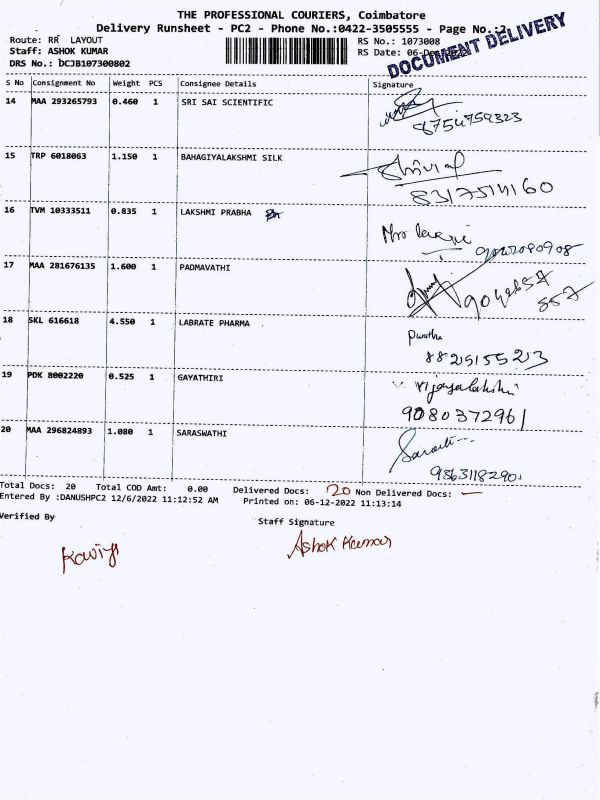 THE PROFESSIONAL COURIERS, Coimbatore
Delivery Runsheet - PC2 - Phone No.:0422-3505555 - Page No.:2
Route: RR LAYOUT
RS No.: 1073008
Staff: ASHOK KUMAR
RS Date: 06-Dec-2022
DRS No.: DCJB107300802
DOCUMENT DELIVERY
S No Consignment No Weight PCS Consignee Details Signature
14 MAA 293265793 0.460 1 SRI SAI SCIENTIFIC
8754759323
15 TRP 6018063 1.150 1 BAHAGIYALAKSHMI SILK
16 TVM 10333511 0.835 1 LAKSHMI PRABHA
17 MAA 281676135 1.600 1 PADMAVATHI
18 SKL 616618 4.550 1 LABRATE PHARMA
8825155213
19 PDK 8002220 0.525 1 GAYATHIRI
Vijayalakshmi
9080372961
20 MAA 296824893 1.080 1 SARASWATHI
Total Docs: 20 Total COD Amt: 0.00 Delivered Docs: 20 Non Delivered Docs: —
Entered By :DANUSHPC2 12/6/2022 11:12:52 AM Printed on: 06-12-2022 11:13:14
Verified By
Staff Signature
Kaviya
Ashok Kumar